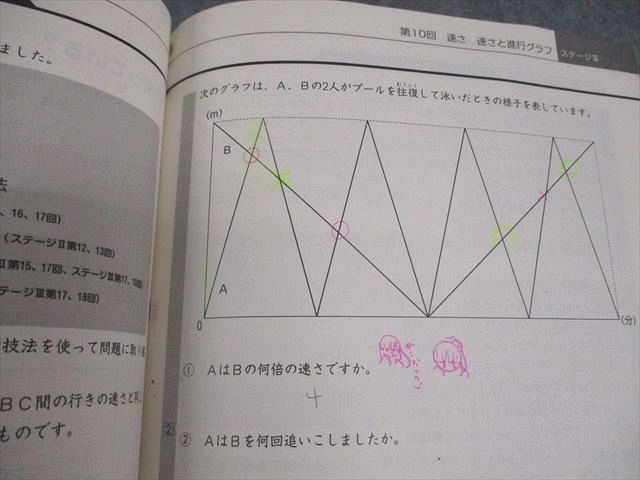 ました。
法
、16、17回)
(ステージⅡ第12、13回)
Ⅱ第15、17回、ステージⅢ第17、18回)
テージⅢ第17、18回)
技法を使って問題に取り
BC間の行きの速さと同
ものです。
第10回 速さ 速さと進行グラフ ステージⅢ
次のグラフは、A、Bの2人がプールを往復して泳いだときの様子を表しています。
おうふく
(m)
B
A
0
(分)
① AはBの何倍の速さですか。
4
2
② AはBを何回追いこしましたか。